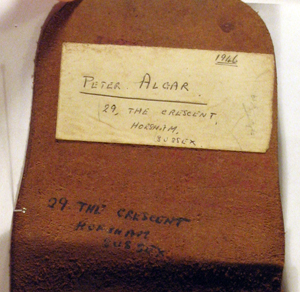 1966
PETER ALGAR.
29, THE CRESCENT,
HORSHAM,
SUSSEX
29 THE CRESCENT
HORSHAM
SUSSEX